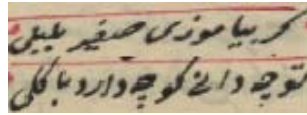 گر بیاموزی صفیر بلبلی
تو چه دانی کو چه دارد با گلی